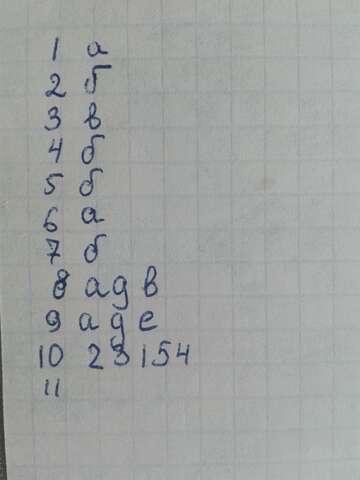 1 а
2 б
3 в
4 б
5 б
6 а
7 б
8 а д в
9 а д е
10 23154
11